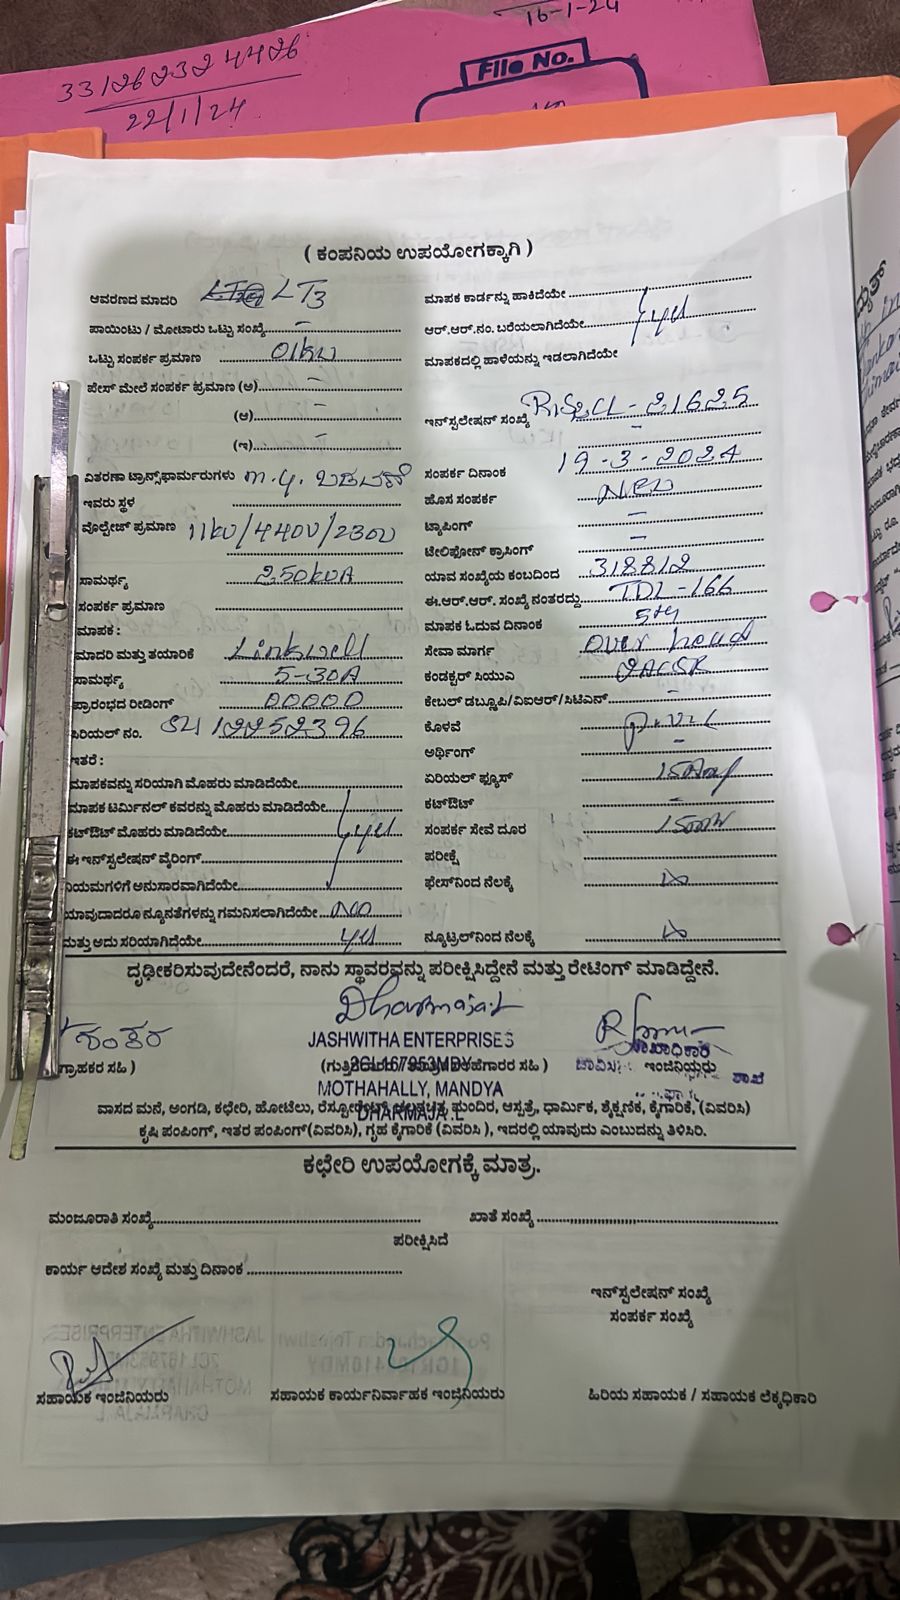 16-1-24
33126232 4426
22/1/24
File No.
( ಕಂಪನಿಯ ಉಪಯೋಗಕ್ಕಾಗಿ )
ಆವರಣದ ಮಾದರಿ LT3
ಪಾಯಿಂಟು / ಮೋಟಾರು ಒಟ್ಟು ಸಂಖ್ಯೆ -
ಒಟ್ಟು ಸಂಪರ್ಕ ಪ್ರಮಾಣ 01KW
ಪೇಸ್ ಮೇಲೆ ಸಂಪರ್ಕ ಪ್ರಮಾಣ (ಅ) -
(ಆ) -
(ಇ) -
ವಿತರಣಾ ಟ್ರಾನ್ಸ್‌ಫಾರ್ಮರುಗಳು
ಇವರು ಸ್ಥಳ
ವೊಲ್ಟೇಜ್ ಪ್ರಮಾಣ 11KV/440V/230V
ಸಾಮರ್ಥ್ಯ 250KVA
ಸಂಪರ್ಕ ಪ್ರಮಾಣ
ಮಾಪಕ :
ಮಾದರಿ ಮತ್ತು ತಯಾರಿಕೆ Linkwell
ಸಾಮರ್ಥ್ಯ 5-30A
ಪ್ರಾರಂಭದ ರೀಡಿಂಗ್ 00000
ಸಿರಿಯಲ್ ನಂ. 12252396
ಇತರೆ :
ಮಾಪಕವನ್ನು ಸರಿಯಾಗಿ ಮೊಹರು ಮಾಡಿದೆಯೇ
ಮಾಪಕ ಟರ್ಮಿನಲ್ ಕವರನ್ನು ಮೊಹರು ಮಾಡಿದೆಯೇ
ಕಟ್‌ಔಟ್ ಮೊಹರು ಮಾಡಿದೆಯೇ yes
ಈ ಇನ್‌ಸ್ಟಲೇಷನ್ ವೈರಿಂಗ್
ನಿಯಮಗಳಿಗೆ ಅನುಸಾರವಾಗಿದೆಯೇ
ಯಾವುದಾದರೂ ನ್ಯೂನತೆಗಳನ್ನು ಗಮನಿಸಲಾಗಿದೆಯೇ NO
ಮತ್ತು ಅದು ಸರಿಯಾಗಿದೆಯೇ yes
ಮಾಪಕ ಕಾರ್ಡನ್ನು ಹಾಕಿದೆಯೇ
ಆರ್.ಆರ್.ನಂ. ಬರೆಯಲಾಗಿದೆಯೇ yes
ಮಾಪಕದಲ್ಲಿ ಹಾಳೆಯನ್ನು ಇಡಲಾಗಿದೆಯೇ
ಇನ್‌ಸ್ಟಲೇಷನ್ ಸಂಖ್ಯೆ
-
ಸಂಪರ್ಕ ದಿನಾಂಕ 19-3-2024
ಹೊಸ ಸಂಪರ್ಕ New
ಟ್ಯಾಪಿಂಗ್ -
ಟೆಲಿಫೋನ್ ಕ್ರಾಸಿಂಗ್ -
ಯಾವ ಸಂಖ್ಯೆಯ ಕಂಬದಿಂದ 318812
ಈ.ಆರ್.ಆರ್. ಸಂಖ್ಯೆ ನಂತರದ್ದು TDL-166
ಮಾಪಕ ಓದುವ ದಿನಾಂಕ 5th
ಸೇವಾ ಮಾರ್ಗ Over head
ಕಂಡಕ್ಟರ್ ಸಿಯುವಿ 2ACSR
ಕೇಬಲ್ ಡಬ್ಲೂಪಿ/ವಿಐಆರ್/ಸಿಟಿಎನ್ -
ಕೊಳವೆ
ಅರ್ಥಿಂಗ್ -
ಏರಿಯಲ್ ಫ್ಯೂಸ್ 15Amp
ಕಟ್‌ಔಟ್ -
ಸಂಪರ್ಕ ಸೇವೆ ದೂರ
ಪರೀಕ್ಷೆ
ಫೇಸ್‌ನಿಂದ ನೆಲಕ್ಕೆ
ನ್ಯೂಟ್ರಲ್‌ನಿಂದ ನೆಲಕ್ಕೆ
ದೃಢೀಕರಿಸುವುದೇನೆಂದರೆ, ನಾನು ಸ್ಥಾವರವನ್ನು ಪರೀಕ್ಷಿಸಿದ್ದೇನೆ ಮತ್ತು ರೇಟಿಂಗ್ ಮಾಡಿದ್ದೇನೆ.
Dharmaja.L
ಶಂಕರ
JASHWITHA ENTERPRISES
ಶಾಖಾಧಿಕಾರಿ
ಗ್ರಾಹಕರ ಸಹಿ )
2CL167953MDY
ಇಂಜಿನಿಯರ್ರು ಶಾಖೆ
MOTHAHALLY, MANDYA
DHARMAJA .L
ವಾಸದ ಮನೆ, ಅಂಗಡಿ, ಕಛೇರಿ, ಹೋಟೆಲು, ಮಂದಿರ, ಆಸ್ಪತ್ರೆ, ಧಾರ್ಮಿಕ, ಶೈಕ್ಷಣಿಕ, ಕೈಗಾರಿಕೆ, (ವಿವರಿಸಿ)
ಕೃಷಿ ಪಂಪಿಂಗ್, ಇತರ ಪಂಪಿಂಗ್(ವಿವರಿಸಿ), ಗೃಹ ಕೈಗಾರಿಕೆ (ವಿವರಿಸಿ ), ಇದರಲ್ಲಿ ಯಾವುದು ಎಂಬುದನ್ನು ತಿಳಿಸಿರಿ.
ಕಛೇರಿ ಉಪಯೋಗಕ್ಕೆ ಮಾತ್ರ.
ಮಂಜೂರಾತಿ ಸಂಖ್ಯೆ ಖಾತೆ ಸಂಖ್ಯೆ
ಪರೀಕ್ಷಿಸಿದೆ
ಕಾರ್ಯ ಆದೇಶ ಸಂಖ್ಯೆ ಮತ್ತು ದಿನಾಂಕ
ಇನ್‌ಸ್ಟಲೇಷನ್ ಸಂಖ್ಯೆ
ಸಂಪರ್ಕ ಸಂಖ್ಯೆ
ಸಹಾಯಕ ಇಂಜಿನಿಯರು ಸಹಾಯಕ ಕಾರ್ಯನಿರ್ವಾಹಕ ಇಂಜಿನಿಯರು ಹಿರಿಯ ಸಹಾಯಕ / ಸಹಾಯಕ ಲೆಕ್ಕಧಿಕಾರಿ